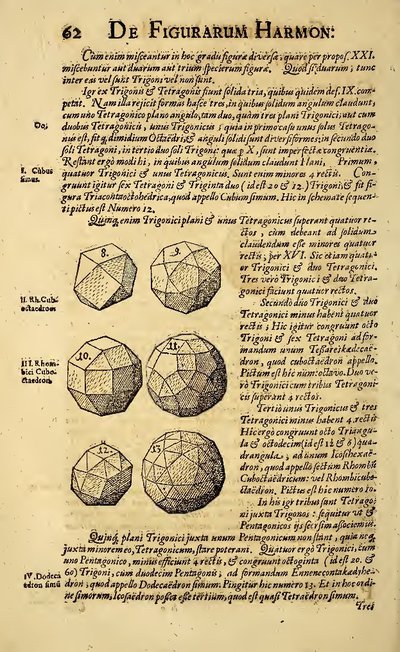 62 DE FIGURARUM HARMON:
Cum enim misceantur in hoc gradu figuræ diversæ, quare per propos. XXI.
miscebuntur aut duarum aut trium specierum figuræ. Quod si duarum; tunc
inter eas vel sunt Trigoni vel non sunt.
Igr ex Trigonis & Tetragonis fiunt solida tria, quibus quidem def. IX. com-
petat. Nam illa rejicit formas hasce tres, in quibus solidum angulum claudunt,
cum uno Tetragonico plano angulo, tam duo, quàm tres plani Trigonici; aut cum
duobus Tetragonicis, unus Trigonicus: quia in primo casu unus solus Tetrago-
nus est, fitq; dimidium Octaëdri & anguli solidi sunt diversiformes: in secundo duo
soli Tetragoni, in tertio duo soli Trigoni: quæ p. X. sunt imperfectæ congruentiæ.
Restant ergò modi hi, in quibus angulum solidum claudunt Plani, Primum,
quatuor Trigonici & unus Tetragonicus. Sunt enim minores 4 rectis. Con-
gruunt igitur sex Tetragoni & Triginta duo (id est 20 & 12.) Trigoni; & fit fi-
gura Triacontaoctohedrica, quod appello Cubum simum. Hic in schemate sequen-
ti pictus est Numero 12.
I. Cubus
simus.
Quinq; enim Trigonici plani & unus Tetragonicus superant quatuor re-
ctos, cùm debeant ad solidum
claudendum esse minores quatuor
rectis, per XVI. Sic etiam quatu-
or Trigonici & duo Tetragonici.
Tres verò Trigonici & duo Tetra-
gonici faciunt quatuor rectos.
Secundò duo Trigonici & duo
Tetragonici minus habent quatuor
rectis: Hic igitur congruunt octo
Trigoni & sex Tetragoni ad for-
mandum unum Tessareskædecaë-
dron, quod cuboctaëdron appello.
Pictum est hic num: octavo. Duo ve-
rò Trigonici cum tribus Tetragoni-
cis superant 4 rectos.
II. Rh. Cub
octaedros
Tertiò unus Trigonicus & tres
Tetragonici minus habent 4 rectis
Hic ergò congruunt octo Triangu-
la & octodecim (id est 12 & 6) qua-
drangula; ad unum Icosihexaë-
dron, quod appello sectum Rhombū
Cuboctaëdricum: vel Rhombicubo-
ctaëdron. Pictus est hic numero 10.
III. Rhom-
bici Cubo-
ctaëdron.
8.
9.
10.
11.
12.
13
In his igr tribus sunt Tetrago-
ni juxta Trigonos: sequitur ut &
Pentagonicos ijs seorsim associemus.
Quinq; plani Trigonici juxta unum Pentagonicum non stant, quia neq;
juxta minorem eo, Tetragonicum, stare poterant. Quatuor ergo Trigonici, cum
uno Pentagonico, minus efficiunt 4 rectis, & congruunt octoginta (id est 20. &
60) Trigoni, cum duodecim Pentagonis; ad formandum Ennenecontakædye-
dron; quod appello Dodecaëdron simum. Pingitur hic numero 13. Et in hoc ordi-
ne simorum, Icosaëdron posset esse tertium, quod est quasi Tetraëdron simum.
IV. Dodeca
Tres